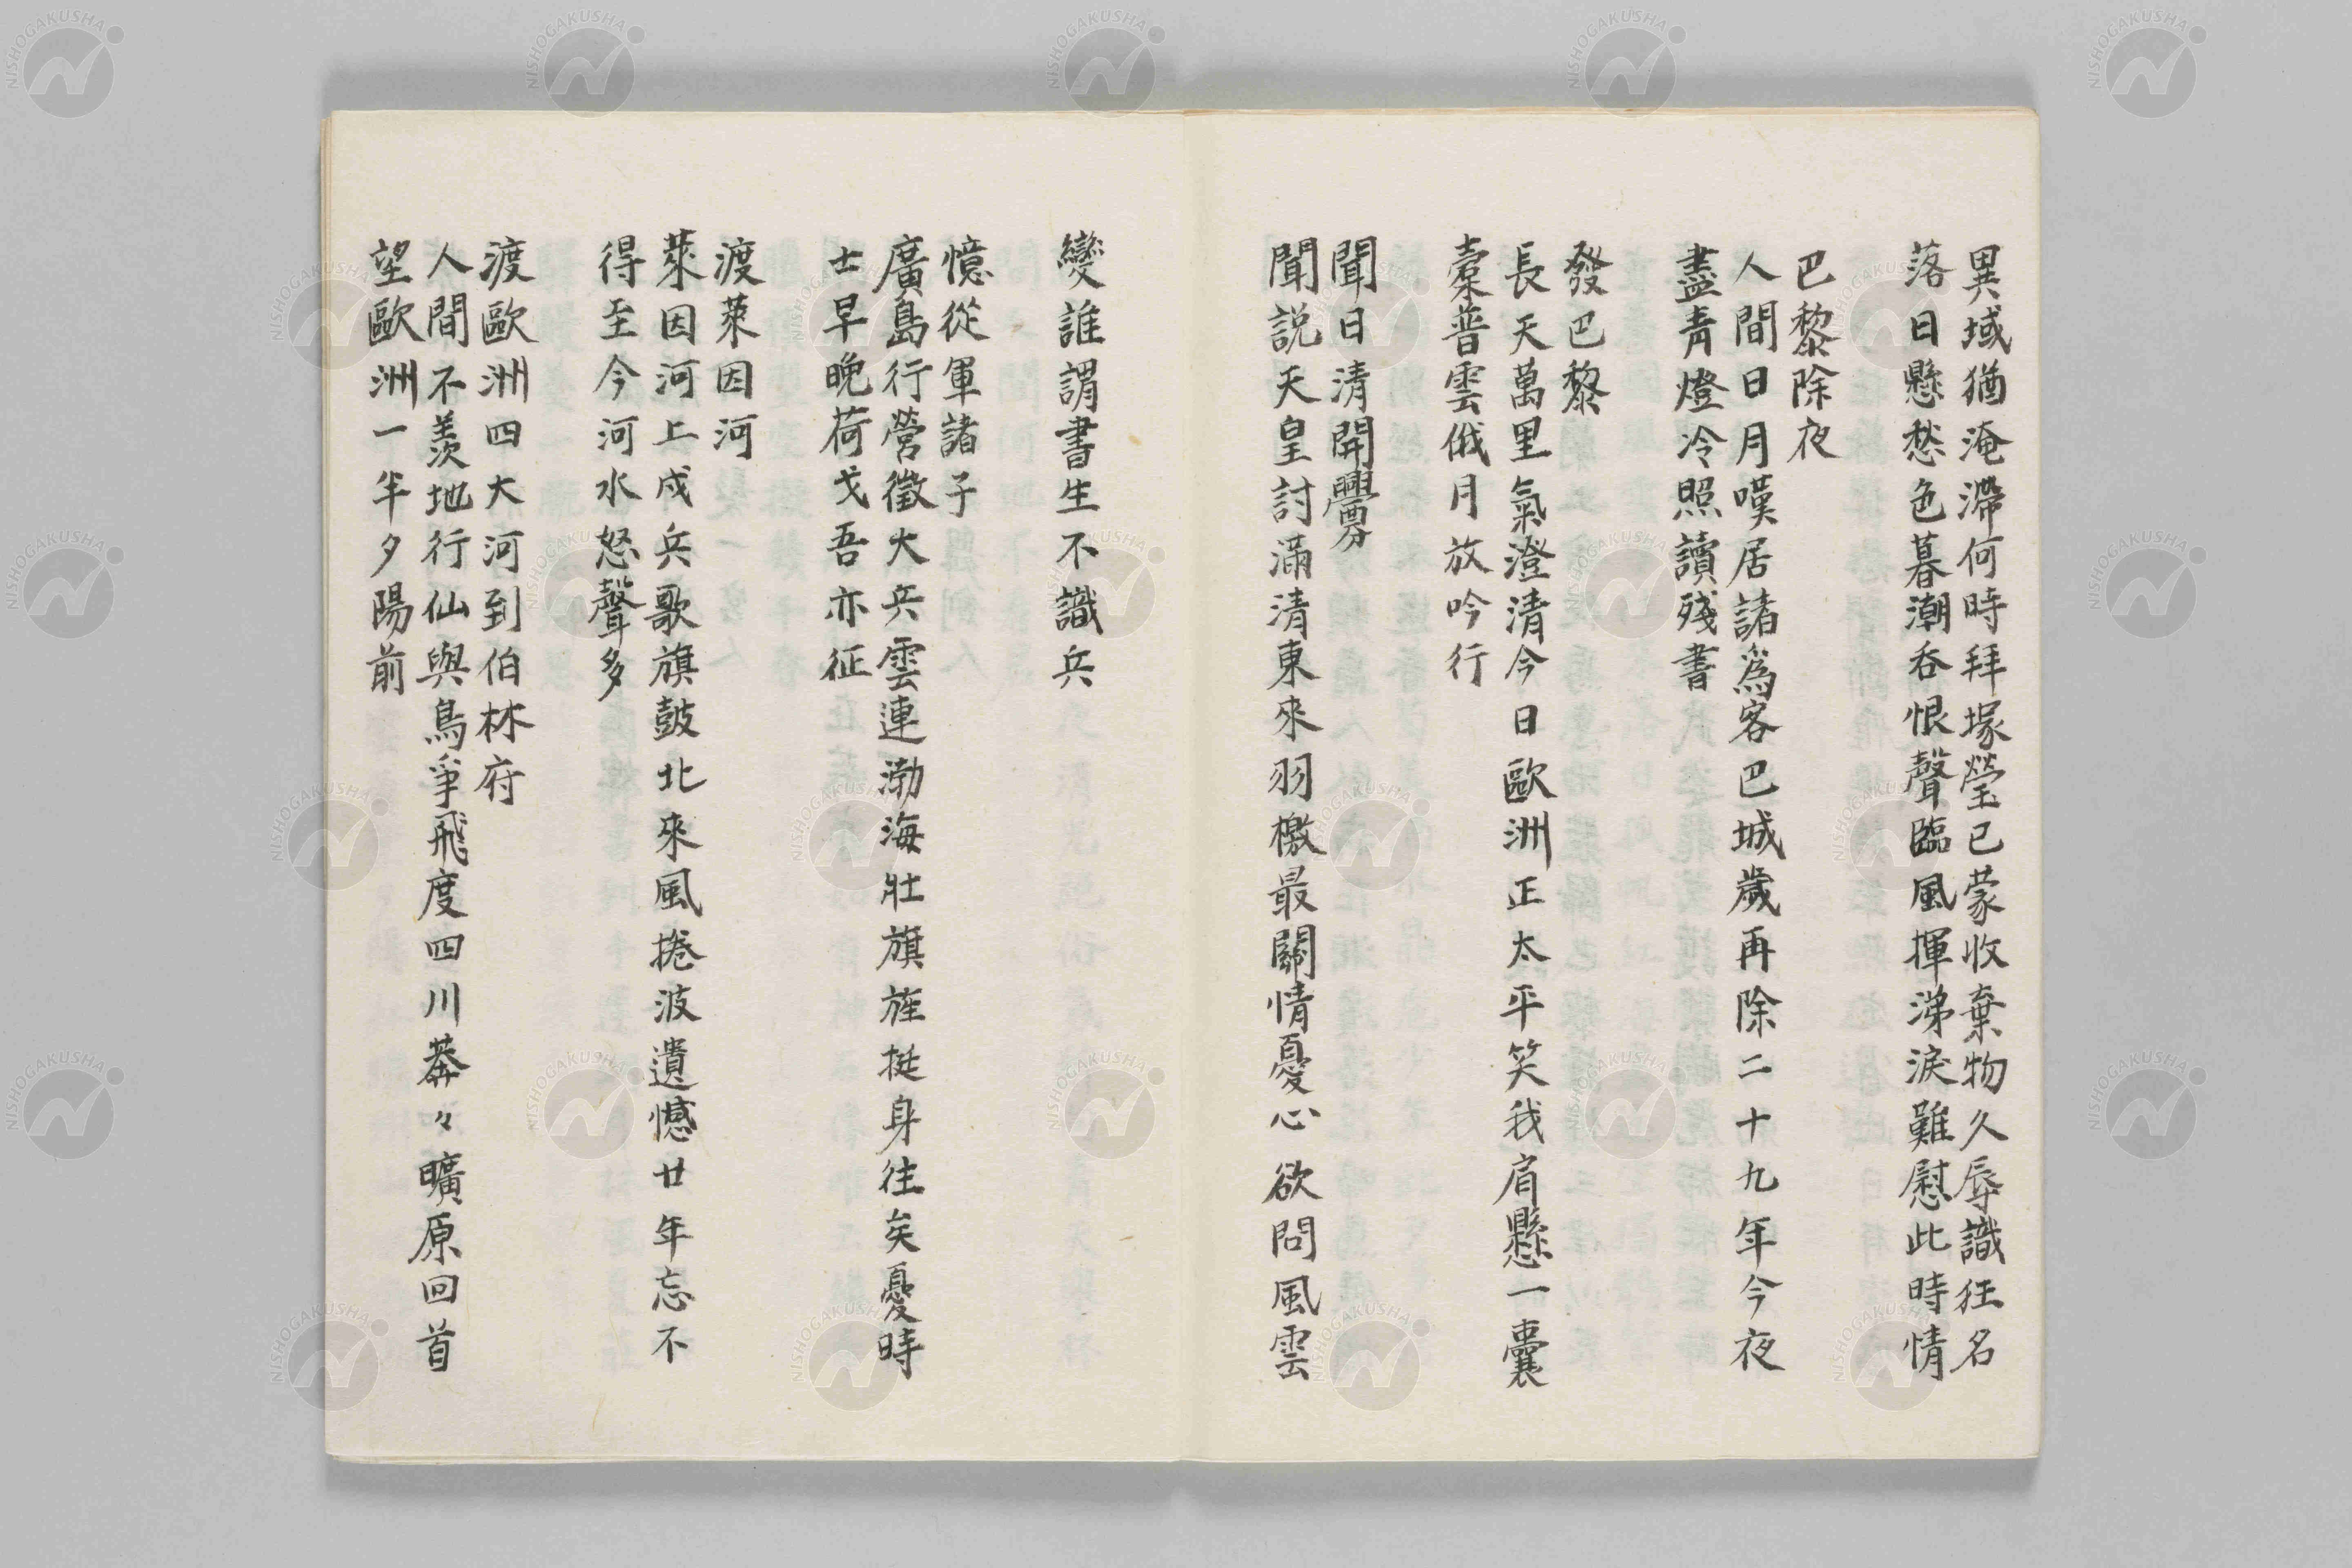 異域猶淹滯何時拜塚塋已蒙收棄物久辱識狂名
落日懸愁色暮潮呑恨聲臨風揮涕淚難慰此時情
巴黎除夜
人間日月嘆居諸為客巴城歲再除二十九年今夜
盡青燈冷照讀殘書
發巴黎
長天萬里氣澄清今日歐洲正太平笑我肩懸一囊
稾普雲俄月放吟行
聞日清開釁
聞説天皇討滿清東來羽檄最關情憂心欲問風雲
變誰謂書生不識兵
憶從軍諸子
廣島行營徵大兵雲連渤海壯旗旌挺身往矣憂時
士早晚荷戈吾亦征
渡萊因河
萊因河上戍兵歌旗鼓北來風捲波遺憾廿年忘不
得至今河水怒聲多
渡歐洲四大河到伯林府
人間不羨地行仙與鳥爭飛度四川莽々曠原回首
望歐洲一半夕陽前
NISHOGAKUSHA